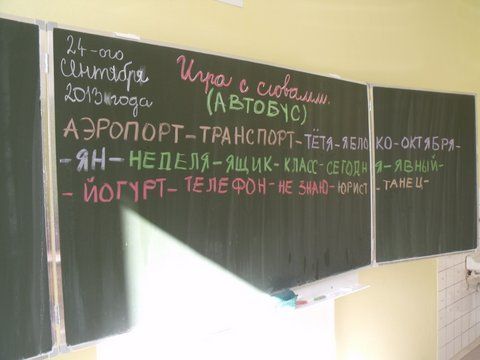 24-ого
сентября
2013 года
Игра с словами.
(АВТОБУС)
АЭРОПОРТ-ТРАНСПОРТ-ТЁТЯ-ЯБЛОКО-ОКТЯБРЯ-
-ЯН-НЕДЕЛЯ-ЯЩИК-КЛАСС-СЕГОДНЯ-ЯВНЫЙ-
-ЙОГУРТ-ТЕЛЕФОН-НЕ ЗНАЮ-ЮРИСТ-ТАНЕЦ-